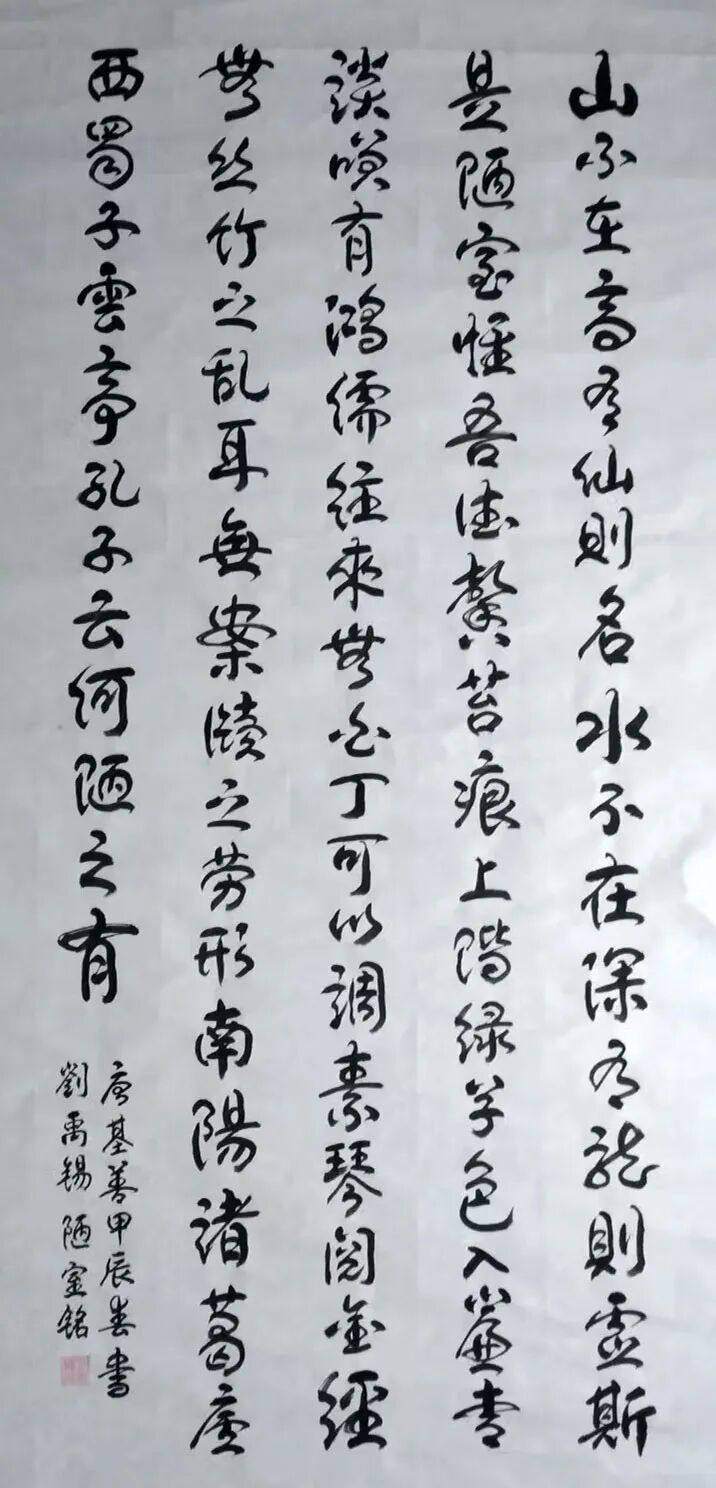 山不在高有仙則名水不在深有龙則灵斯
是陋室惟吾德馨苔痕上階緑草色入簾青
談笑有鴻儒往來無白丁可以調素琴阅金經
無丝竹之乱耳無案牍之劳形南陽诸葛庐
西蜀子雲亭孔子云何陋之有
唐基善甲辰春书
劉禹锡陋室铭